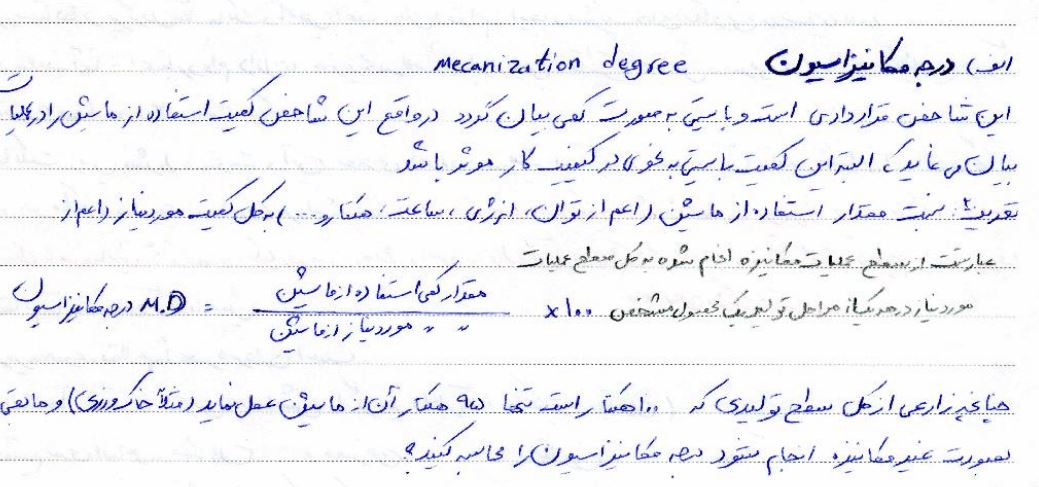 الف) درجه مکانیزاسیون mecanization degree
این شاخص قراردادی است و بایستی به صورت کمی بیان گردد در واقع این شاخص کمیت استفاده از ماشین را در عملیات
بیان می نماید که البته این کمیت بایستی به نحوی در کیفیت کار موثر باشد
تعریف: نسبت مقدار استفاده از ماشین (اعم از توان، انرژی، ساعت، هکتار و ...) به کل کمیت مورد نیاز (اعم از
عبارتست از سطح عملیات مکانیزه انجام شده به کل سطح عملیات
مورد نیاز در هر یک از مراحل تولید یک محصول مشخص
درجه مکانیزاسیون M.D = مقدار کمی استفاده از ماشین ×۱۰۰
" " مورد نیاز از ماشین
چنانچه زارعی از کل سطح تولیدی که ۱۰۰ هکتار است تنها هکتار آن از ماشین عمل نماید (مثلاً خاک ورزی) و مابقی
بصورت غیر مکانیزه انجام شود درجه مکانیزاسیون را محاسبه کنید؟